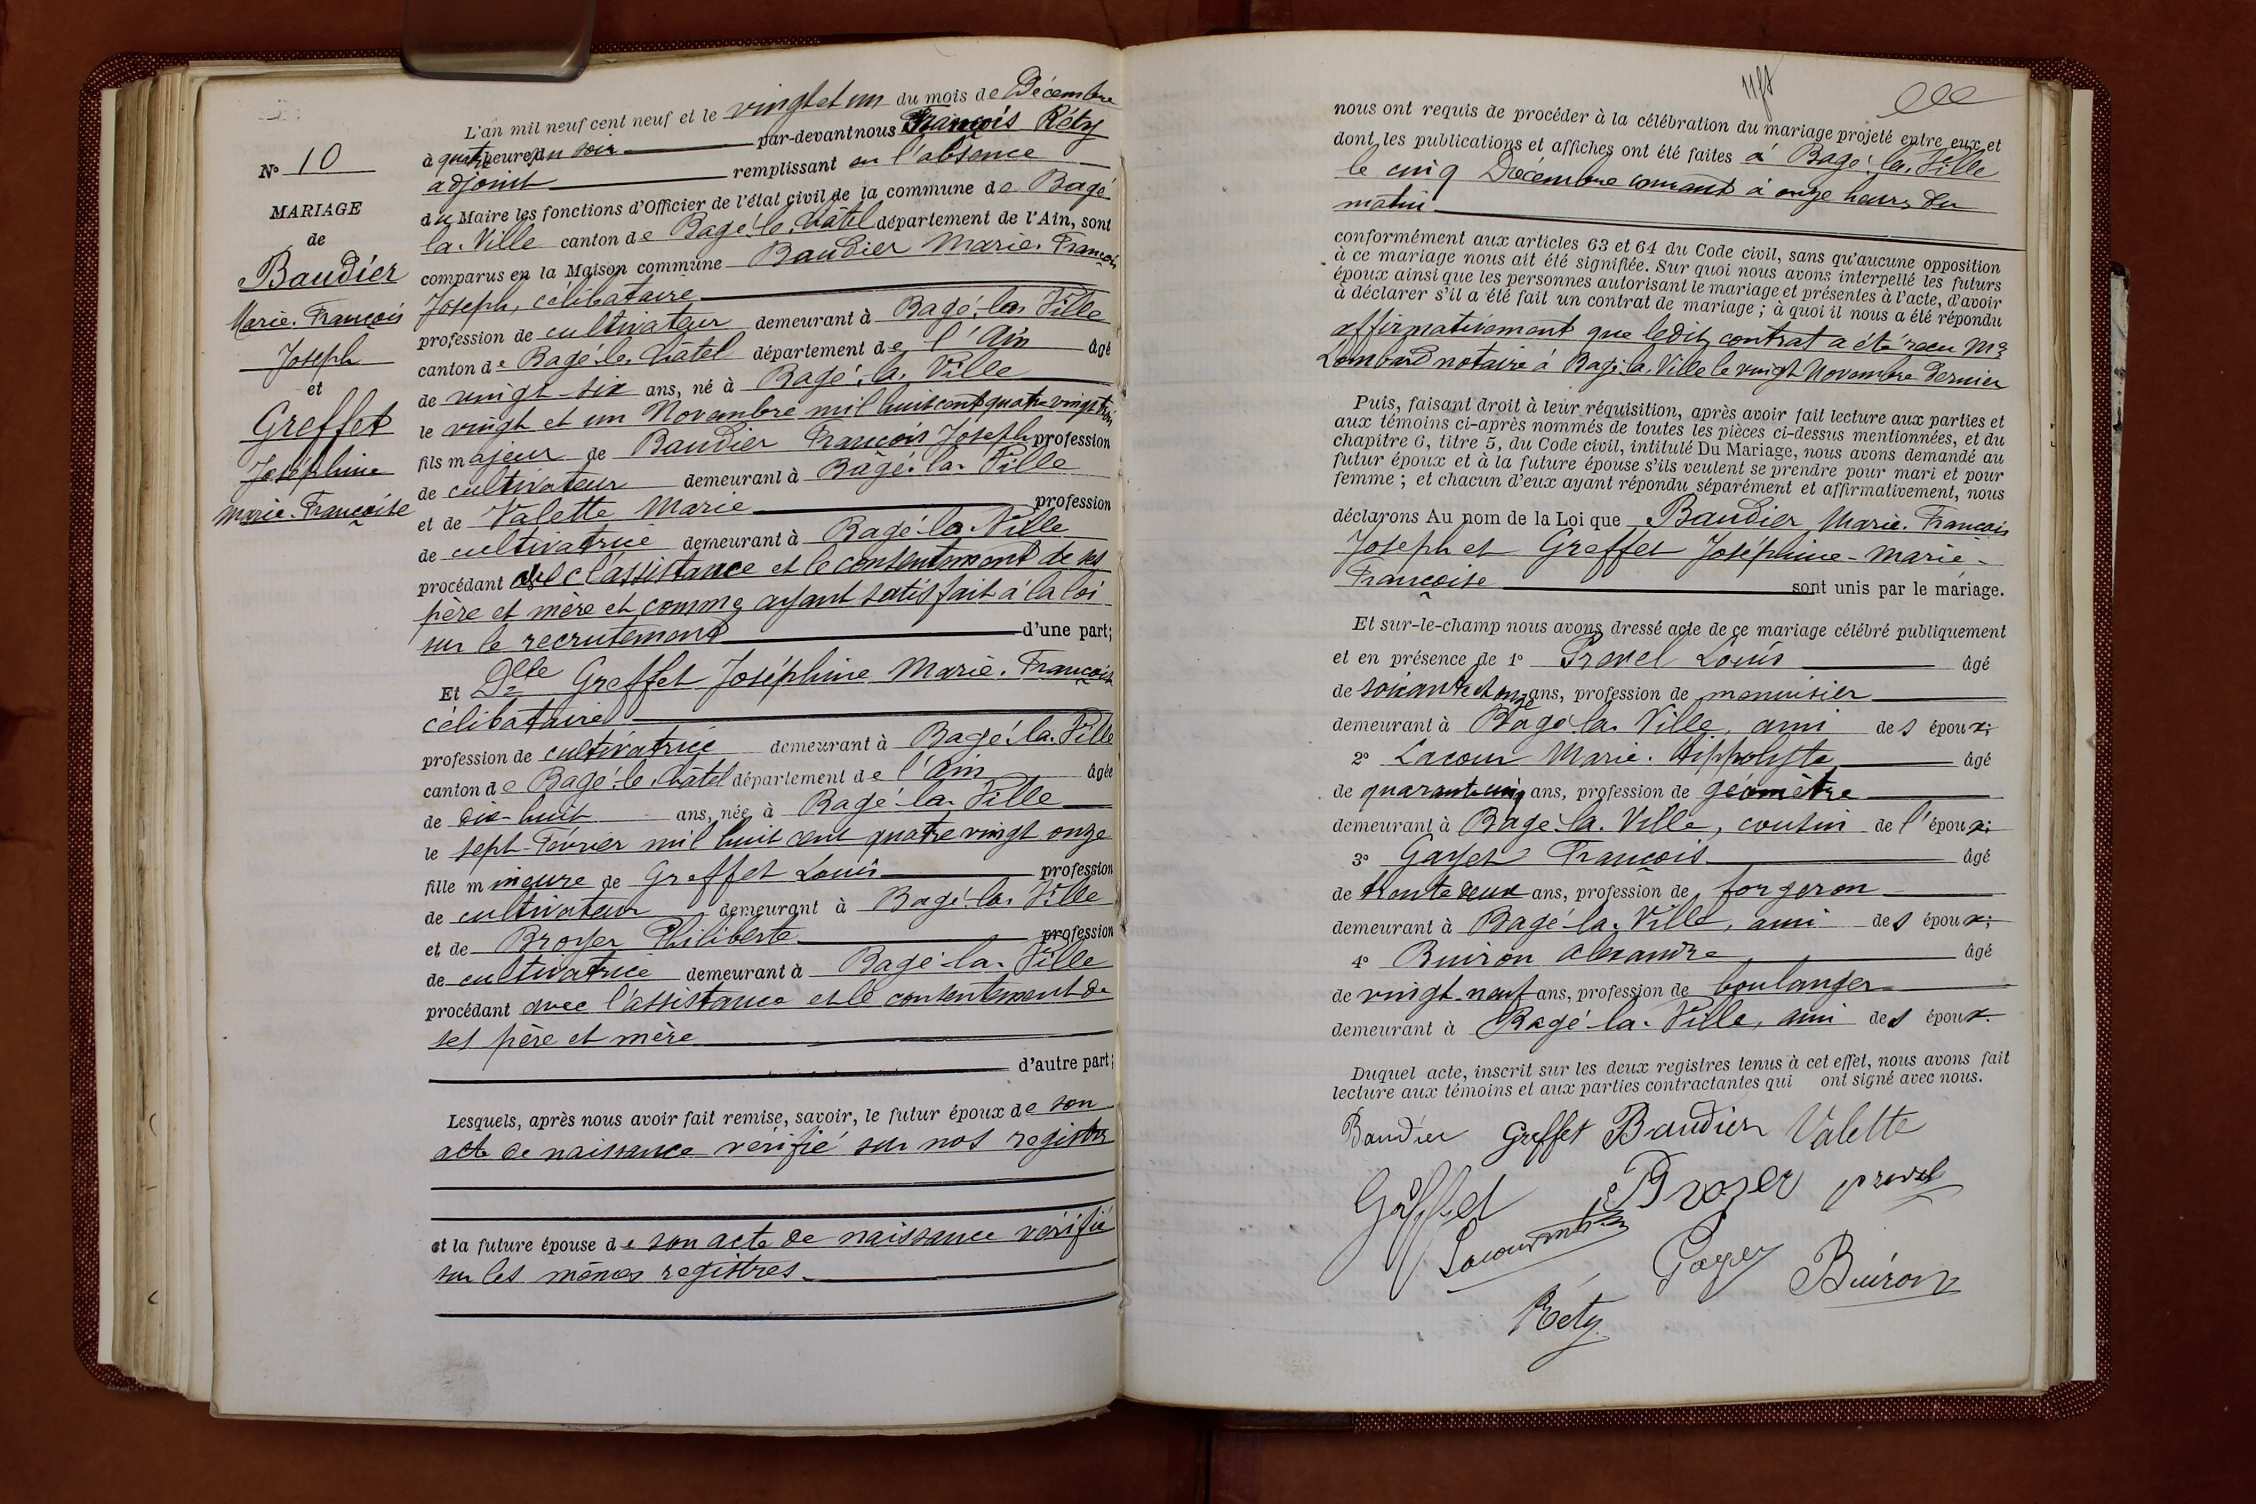 N° 10
MARIAGE
de
Baudier
Marie. François
Joseph
et
Greffet
Joséphine
Marie. Françoise
L'an mil neuf cent neuf et le vingt et un du mois de Décembre
à quatre heures du soir par-devant nous François Réty
adjoint remplissant en l'absence
du Maire les fonctions d'Officier de l'état civil de la commune de Bagé
la. Ville canton de Bagé. le. Châtel département de l'Ain, sont
comparus en la Maison commune Baudier Marie. François
Joseph, célibataire
profession de cultivateur demeurant à Bagé. la. Ville
canton de Bagé. le. Châtel département de l'Ain âgé
de vingt-six ans, né à Bagé. la. Ville
le vingt et un Novembre mil huit cent quatre vingt trois
fils majeur de Baudier François Joseph profession
de cultivateur demeurant à Bagé. la. Ville
et de Valette Marie profession
de cultivatrice demeurant à Bagé. la. Ville
procédant avec l'assistance et le consentement de ses
père et mère et comme ayant satisfait à la loi
sur le recrutement d'une part;
Et Dlle Greffet Joséphine Marie. Françoise
célibataire
profession de cultivatrice demeurant à Bagé. la. Ville
canton de Bagé. le. Châtel département de l'Ain âgée
de dix-huit ans, née à Bagé-la-Ville
le sept Février mil huit cent quatre vingt onze
fille mineure de Greffet Louis profession
de cultivateur demeurant à Bagé. la. Ville
et de Broyer Philiberte profession
de cultivatrice demeurant à Bagé-la-Ville
procédant avec l'assistance et le consentement de
ses père et mère
d'autre part;
Lesquels, après nous avoir fait remise, savoir, le futur époux de son
acte de naissance vérifié sur nos registres
et la future épouse de son acte de naissance vérifié
sur les mêmes registres.
nous ont requis de procéder à la célébration du mariage projeté entre eux et
dont les publications et affiches ont été faites à Bagé. la. Ville
le cinq Décembre courant à onze heures du
matin
conformément aux articles 63 et 64 du Code civil, sans qu'aucune opposition
à ce mariage nous ait été signifiée. Sur quoi nous avons interpellé les futurs
époux ainsi que les personnes autorisant le mariage et présentes à l'acte, d'avoir
à déclarer s'il a été fait un contrat de mariage; à quoi il nous a été répondu
affirmativement que ledit contrat a été reçu Me
Lombard notaire à Bagé. la. Ville le vingt Novembre dernier
Puis, faisant droit à leur réquisition, après avoir fait lecture aux parties et
aux témoins ci-après nommés de toutes les pièces ci-dessus mentionnées, et du
chapitre 6, titre 5, du Code civil, intitulé Du Mariage, nous avons demandé au
futur époux et à la future épouse s'ils veulent se prendre pour mari et pour
femme; et chacun d'eux ayant répondu séparément et affirmativement, nous
déclarons Au nom de la Loi que Baudier Marie. François
Joseph et Greffet Joséphine-Marie-
Françoise sont unis par le mariage.
Et sur-le-champ nous avons dressé acte de ce mariage célébré publiquement
et en présence de 1° Prevel Louis âgé
de soixante et onze ans, profession de menuisier
demeurant à Bagé la. Ville, ami des époux;
2° Lacour Marie. Hippolyte âgé
de quarante cinq ans, profession de géomètre
demeurant à Bagé. la. Ville, cousin de l'époux;
3° Gayet François âgé
de trente deux ans, profession de forgeron
demeurant à Bagé-la. Ville, ami des époux;
4° Buiron Alexandre âgé
de vingt-neuf ans, profession de boulanger
demeurant à Bagé-la. Ville, ami des époux.
Duquel acte, inscrit sur les deux registres tenus à cet effet, nous avons fait
lecture aux témoins et aux parties contractantes qui ont signé avec nous.
Baudier Greffet Baudier Valette
Greffet Broyer prevel
Lacour
Gayet Buiron
Réty